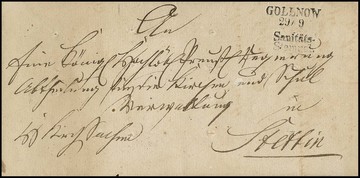 GOLLNOW
29/9
Sanitäts-
Stempel
An
Eine Königl. Preuß. Regierung
Abtheilung für die Kirchen und Schul
Verwaltung
in
Stettin